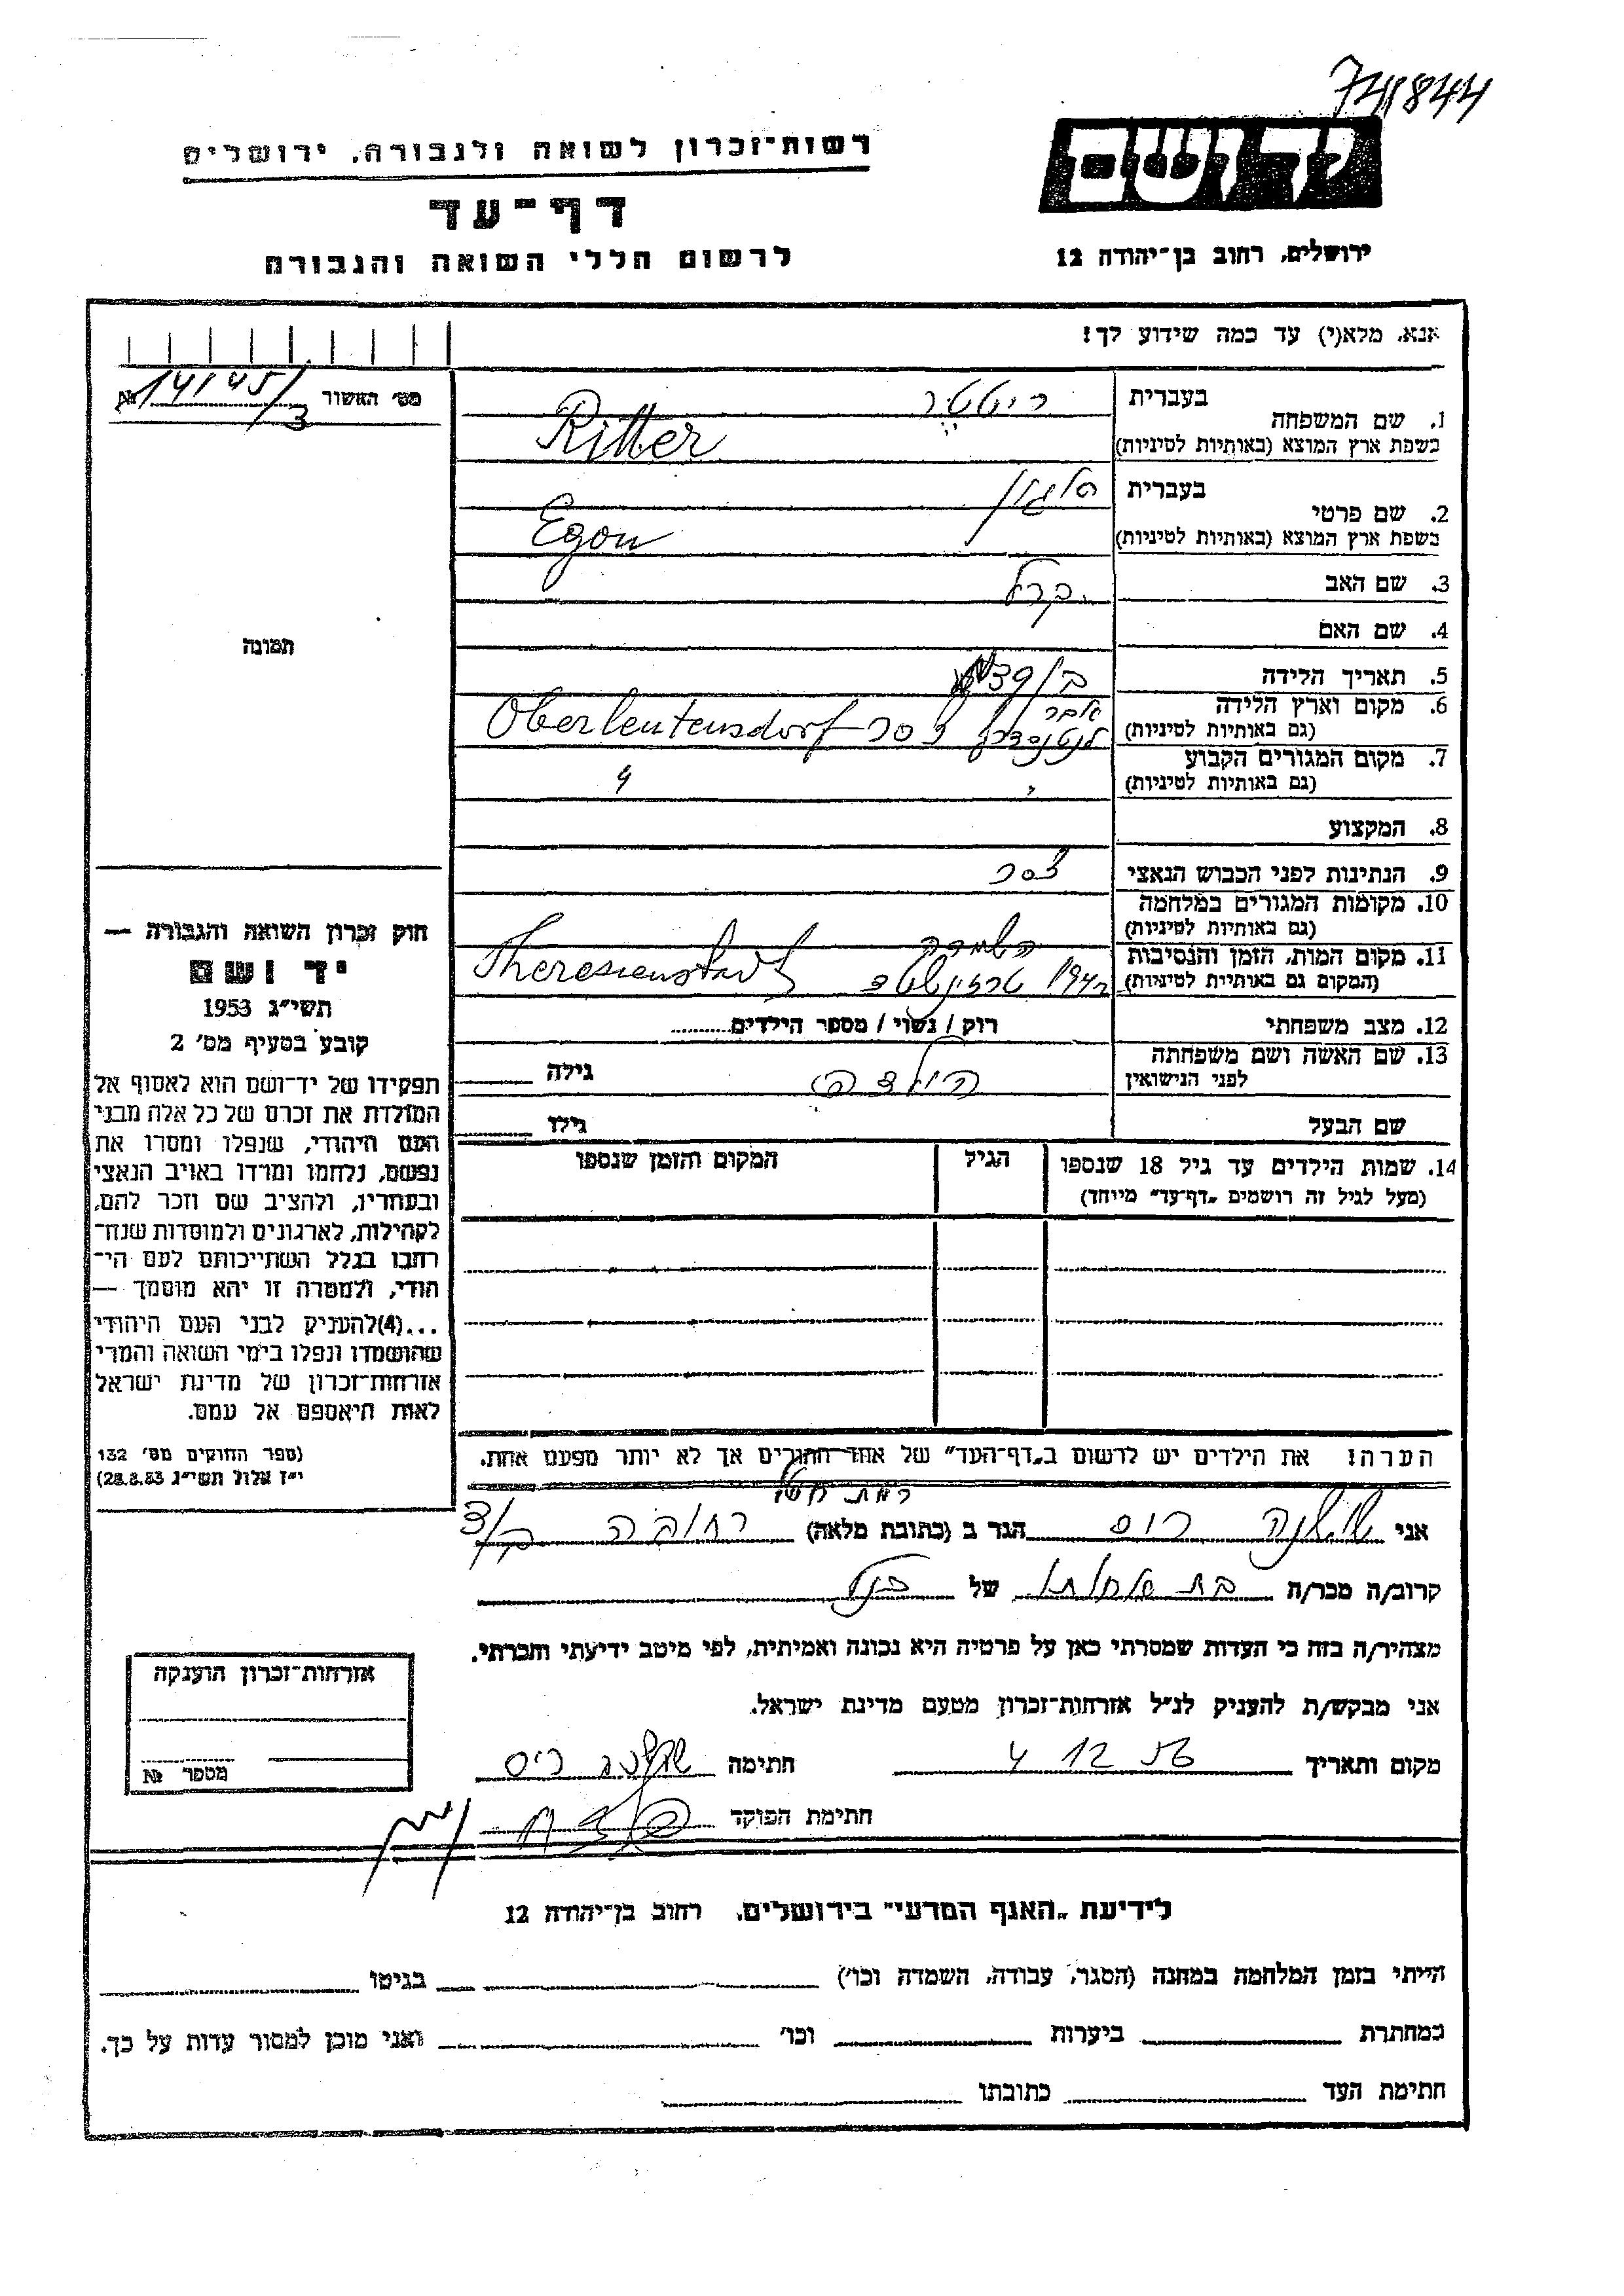 741844
רשות־זכרון לשואה ולגבורה, ירושלים
יד ושם
דף־עד
לרשום חללי השואה והגבורה
ירושלים, רחוב בן־יהודה 12
אנא, מלא(י) עד כמה שידוע לך!
מס׳ האשור № 14145/3
1. שם המשפחה
בעברית ריטטר
בשפת ארץ המוצא (באותיות לטיניות) Ritter
2. שם פרטי
בעברית
בשפת ארץ המוצא (באותיות לטיניות) Egon
3. שם האב קרל
4. שם האם
תמונה
5. תאריך הלידה
6. מקום וארץ הלידה
(גם באותיות לטיניות) צסר Oberleutensdorf
7. מקום המגורים הקבוע
(גם באותיות לטיניות) "
8. המקצוע
9. הנתינות לפני הכבוש הנאצי צסר
10. מקומות המגורים במלחמה
(גם באותיות לטיניות)
11. מקום המות, הזמן והנסיבות השמדה
(המקום גם באותיות לטיניות) Theresienstadt
12. מצב משפחתי רוק / נשוי / מספר הילדים
13. שם האשה ושם משפחתה
לפני הנישואין גילה
שם הבעל גילו
14. שמות הילדים עד גיל 18 שנספו
(מעל לגיל זה רושמים „דף־עד״ מיוחד)
הגיל
המקום והזמן שנספו
חוק זכרון השואה והגבורה —
יד ושם
תשי״ג 1953
קובע בסעיף מס׳ 2
תפקידו של יד־ושם הוא לאסוף אל
המולדת את זכרם של כל אלה מבני
העם היהודי, שנפלו ומסרו את
נפשם, נלחמו ומרדו באויב הנאצי
ובעוזריו, ולהציב שם וזכר להם,
לקהילות, לארגונים ולמוסדות שנח־
רבו בגלל השתייכותם לעם הי־
הודי, ולמטרה זו יהא מוסמך —
...(4) להעניק לבני העם היהודי
שהושמדו ונפלו בימי השואה והמרי
אזרחות־זכרון של מדינת ישראל
לאות היאספם אל עמם.
(ספר החוקים מס׳ 132
י״ז אלול תשי״ג 28.8.53)
הערה! את הילדים יש לרשום ב„דף־העד״ של אחד ההורים אך לא יותר מפעם אחת.
אני שושנה ריס הגר ב (כתובת מלאה)
קרוב/ה מכר/ה של
מצהיר/ה בזה כי העדות שמסרתי כאן על פרטיה היא נכונה ואמיתית, לפי מיטב ידיעתי והכרתי.
אני מבקש/ת להעניק לנ״ל אזרחות־זכרון מטעם מדינת ישראל.
מקום ותאריך 4 12 56 חתימה שושנה ריס
חתימת הפוקד
אזרחות־זכרון הוענקה
מספר №
לידיעת „האגף המדעי״ בירושלים, רחוב בן־יהודה 12
הייתי בזמן המלחמה במחנה (הסגר, עבודה, השמדה וכו׳) בגיטו
במחתרת ביערות וכו׳ ואני מוכן למסור עדות על כך.
חתימת העד כתובתו